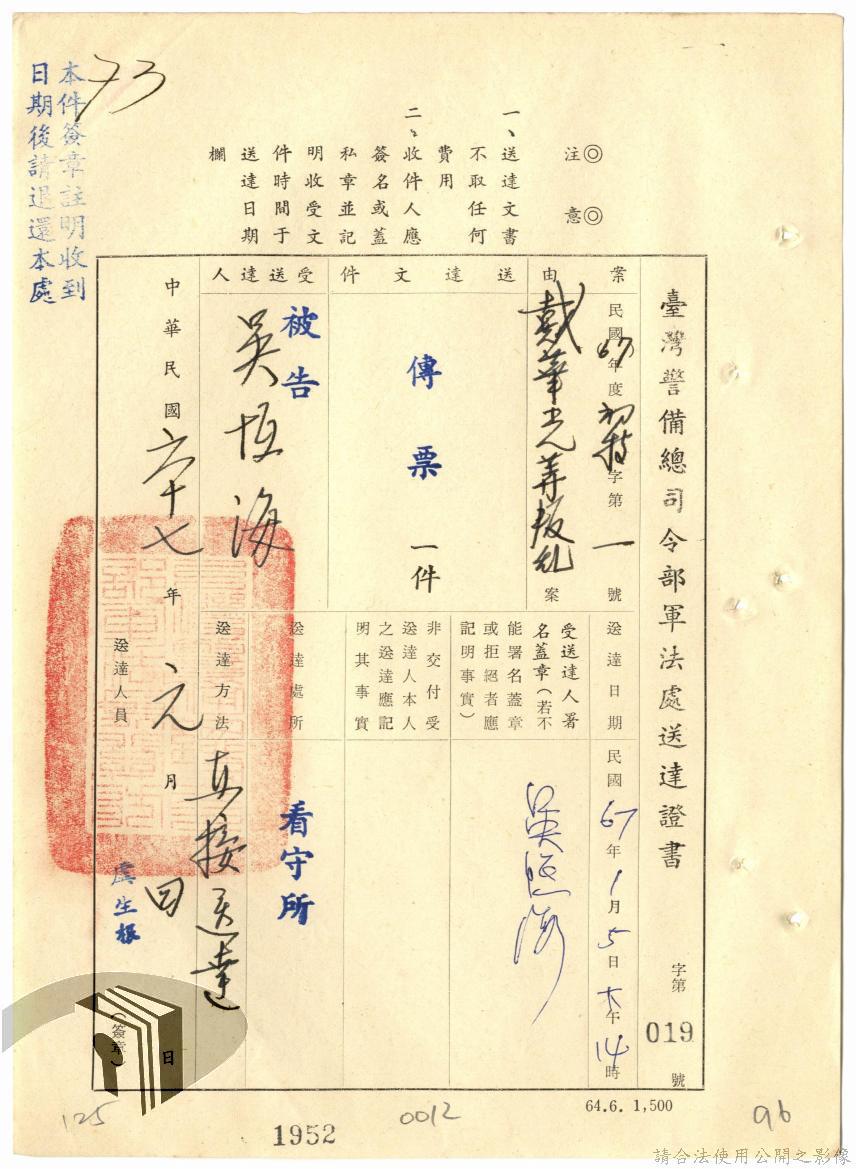 臺灣警備總司令部軍法處送達證書
字第019號
◎注意◎
一、送達文書不取任何費用
二、收件人應簽名或蓋私章並記明收受文件時間于送達日期欄
本件簽章註明收到
日期後請退還本處
73
案由
民國67年度初特字第一號
戴華光等叛亂案
送達文件
傳票一件
受送達人
被告
吳恆海
送達日期
民國67年1月5日下午14時
受送達人署名蓋章(若不能署名蓋章或拒絕者應記明事實)
吳恆海
非交付受送達人本人之送達應記明其事實
送達處所
看守所
送達方法
直接送達
中華民國六十七年元月四日
送達人員
虞生根
(簽章)
64.6. 1,500
125
1952
0012
96
請合法使用公開之影像